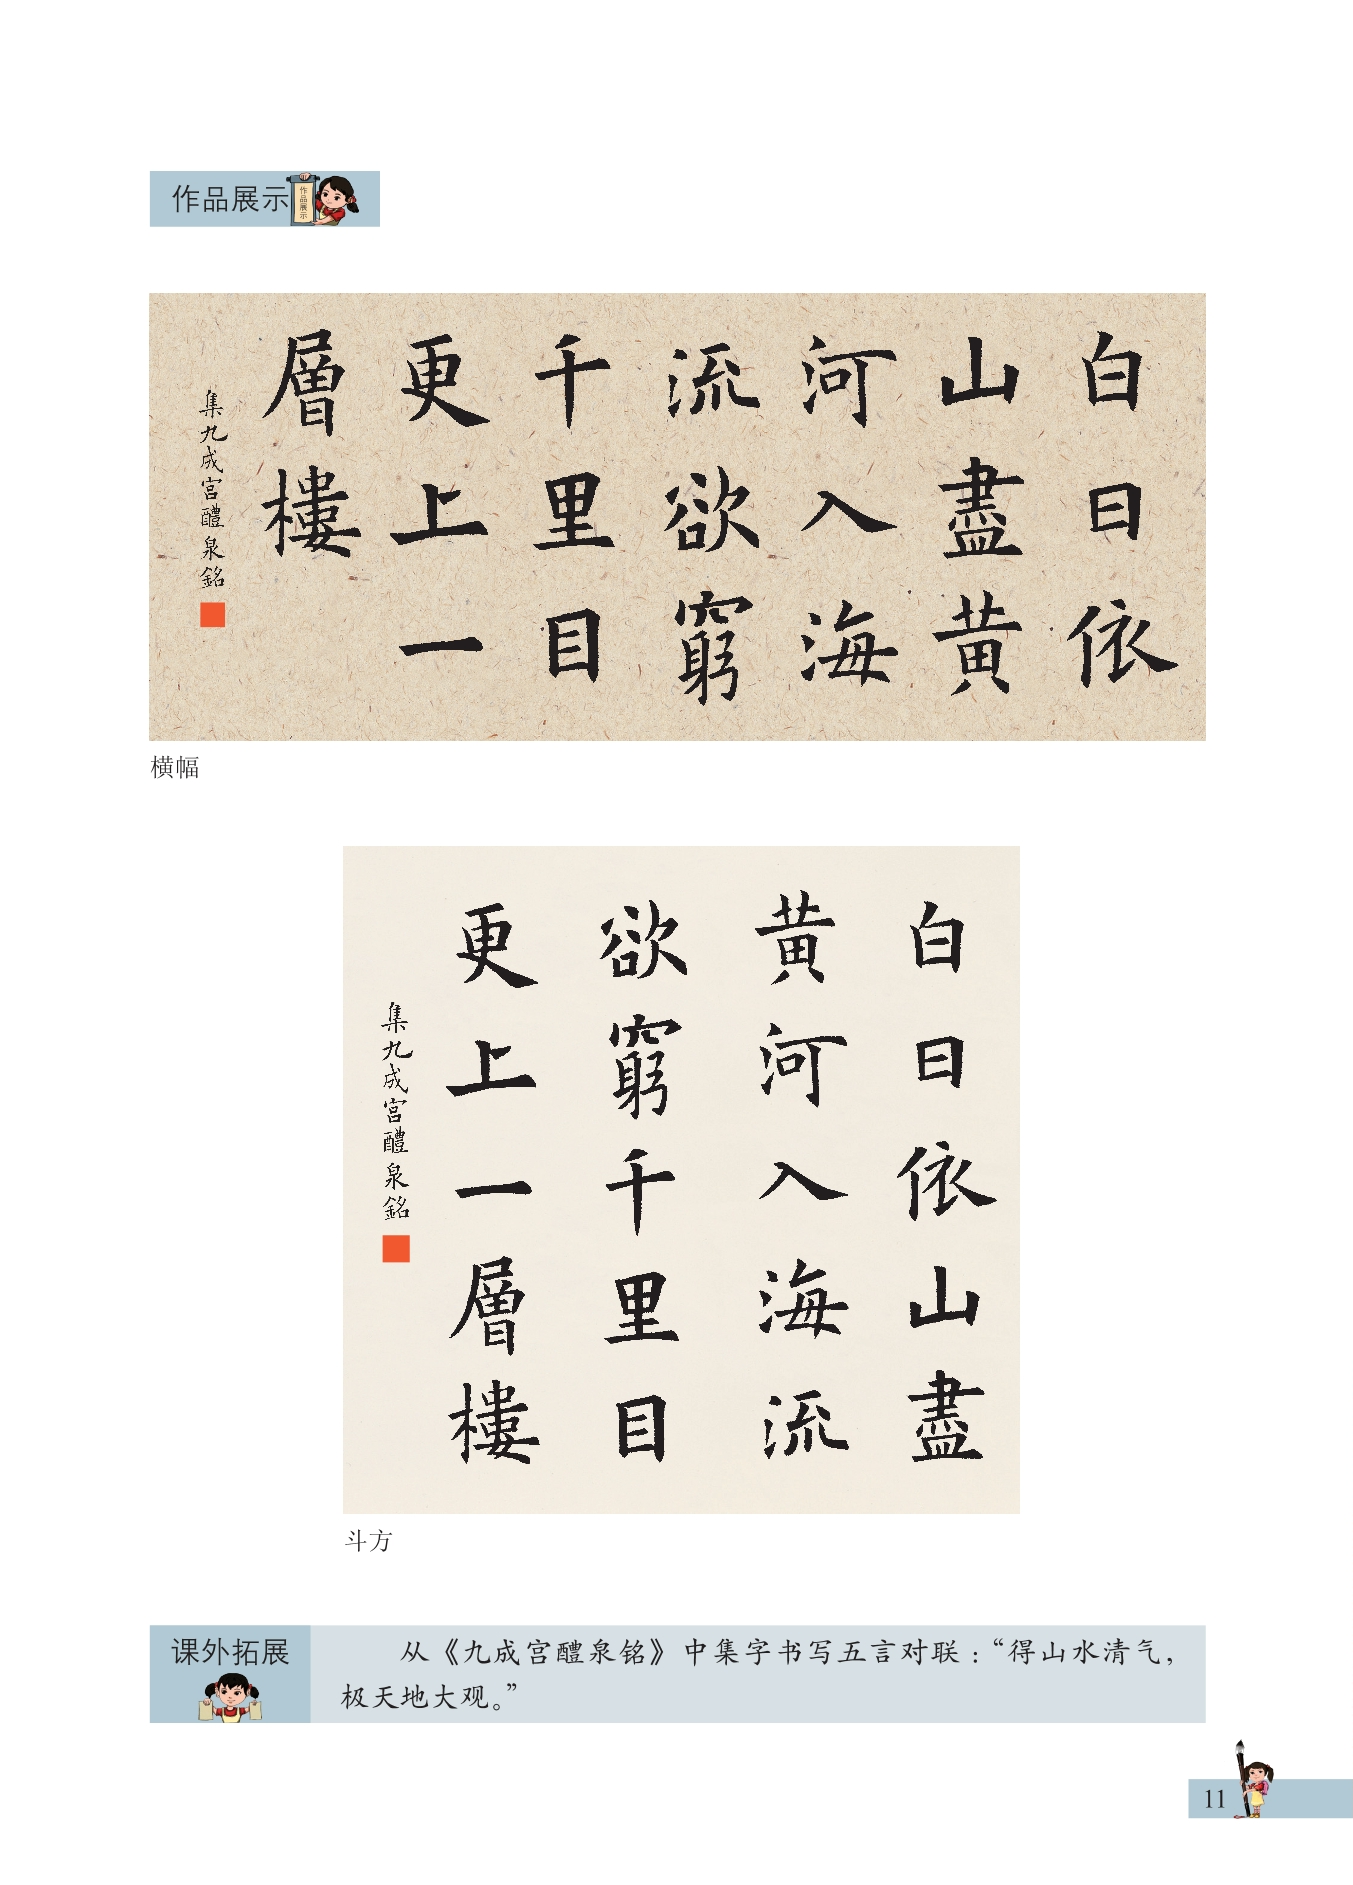 作品展示
作品展示
白日依
山盡黄
河入海
流欲窮
千里目
更上一
層樓
集九成宮醴泉銘
横幅
白日依山盡
黄河入海流
欲窮千里目
更上一層樓
集九成宮醴泉銘
斗方
课外拓展
从《九成宫醴泉铭》中集字书写五言对联：“得山水清气，
极天地大观。”
11